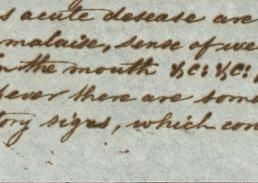 s acute desease are
malaise, sense of we
n the mouth &c: &c:
ever there are some
tory signs, which con